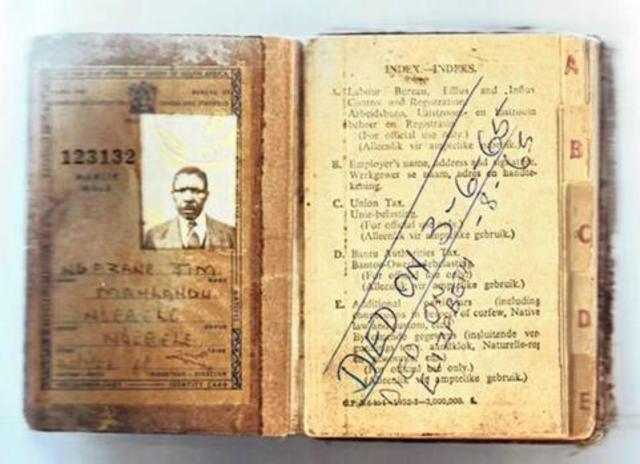 123132
MANLIK
MALE
NDEZANE JIM
MAHLANGU
NDEBELE
NDEBELE
IDENTITY CARD
INDEX.—INDEKS.
A. Labour Bureau, Efflux and Influx
Control and Registration.
Arbeidsburo, Uitstroom- en Instroom-
beheer en Registrasie.
(For official use only.)
(Alleenlik vir amptelike gebruik.)
B. Employer's name, address and signature.
Werkgewer se naam, adres en handte-
kening.
C. Union Tax.
Unie-belasting.
(For official use only.)
(Alleenlik vir amptelike gebruik.)
D. Bantu Authorities Tax.
(For official use only.)
(Alleenlik vir amptelike gebruik.)
E. Additional particulars (including
of curfew, Native
law and custom, etc.)
gegewens (insluitende ver-
aandklok, Naturelle-reg
(For official use only.)
(Alleenlik vir amptelike gebruik.)
DIED ON 3-6-65
DIED ON
A
B
C
D
E